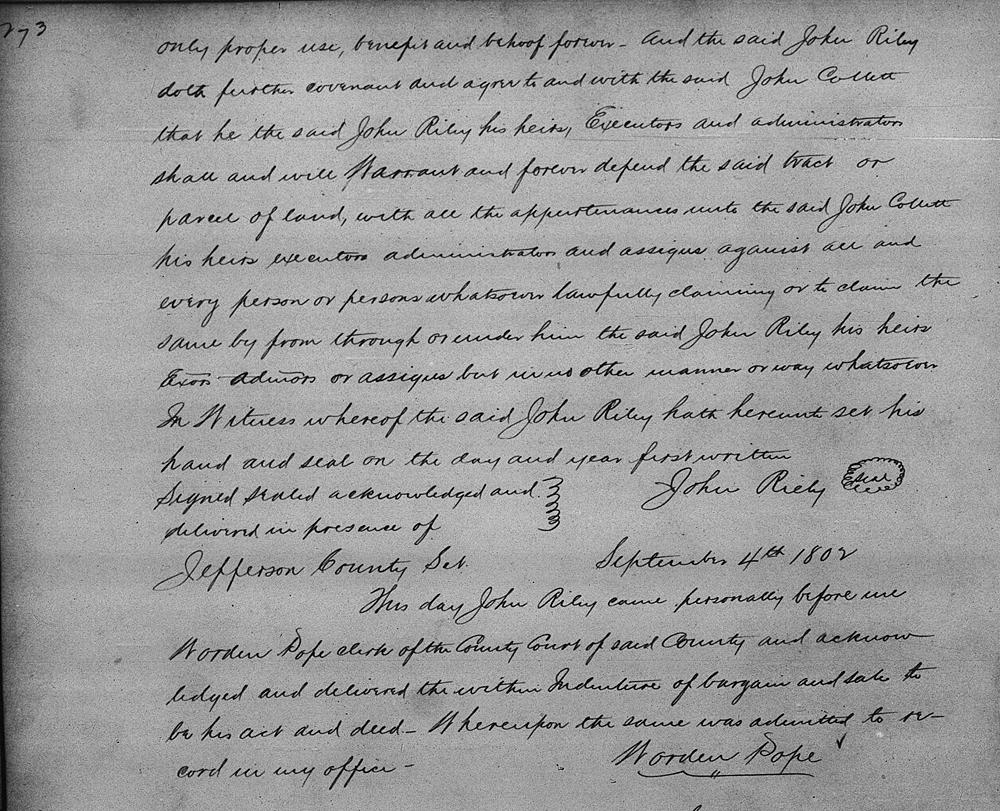 273
only proper use, benefit and behoof forever - And the said John Riley
doth further covenant and agree to and with the said John Collett
that he the said John Riley his heirs, Executors and administrators
shall and will Warrant and forever defend the said tract or
parcel of land, with all the appurtenances unto the said John Collett
his heirs executors administrators and assigns against all and
every person or persons whatsoever lawfully claiming or to claim the
same by from through or under him the said John Riley his heirs
Exors admors or assigns but in no other manner or way whatsoever
In Witness whereof the said John Riley hath hereunto set his
hand and seal on the day and year first written
Signed sealed acknowledged and John Riely seal
delivered in presence of
Jefferson County Sct. September 4th 1802
This day John Riley came personally before me
Worden Pope clerk of the County Court of said County and acknow
ledged and delivered the within Indenture of bargain and sale to
be his act and deed - Whereupon the same was admitted to re-
cord in my office -
Worden Pope